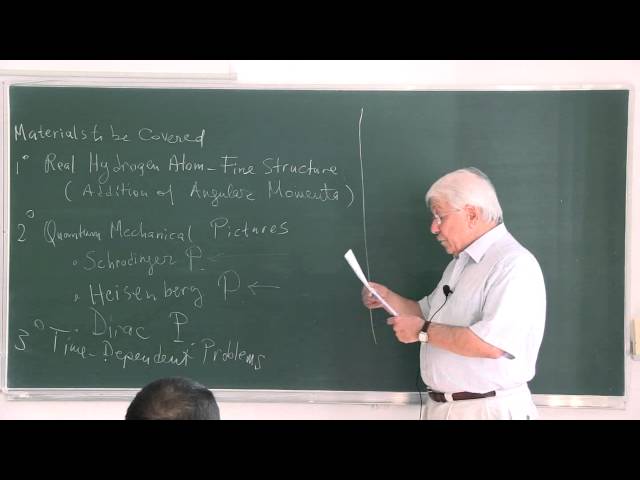 Materials to be Covered
1° Real Hydrogen Atom - Fine Structure
(Addition of Angular Momenta)
2° Quantum Mechanical Pictures
• Schrodinger P. ←
• Heisenberg P. ←
Dirac P
3° Time-Dependent Problems